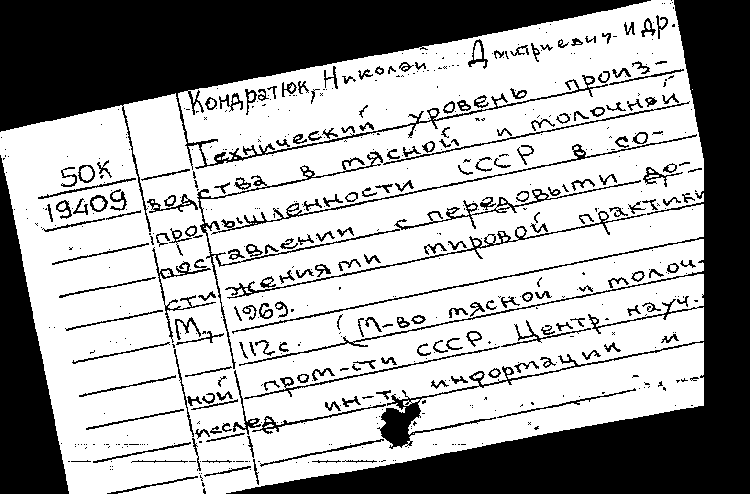 Кондратюк, Николай Дмитриевич и др.
Технический уровень произ-
50К
19409
водства в мясной и молочной
промышленности СССР в со-
поставлении с передовыми до-
стижениями мировой практики
М., 1969.
112 с. (М-во мясной и молоч-
ной пром-сти СССР. Центр. науч.-
исслед. ин-т информации и